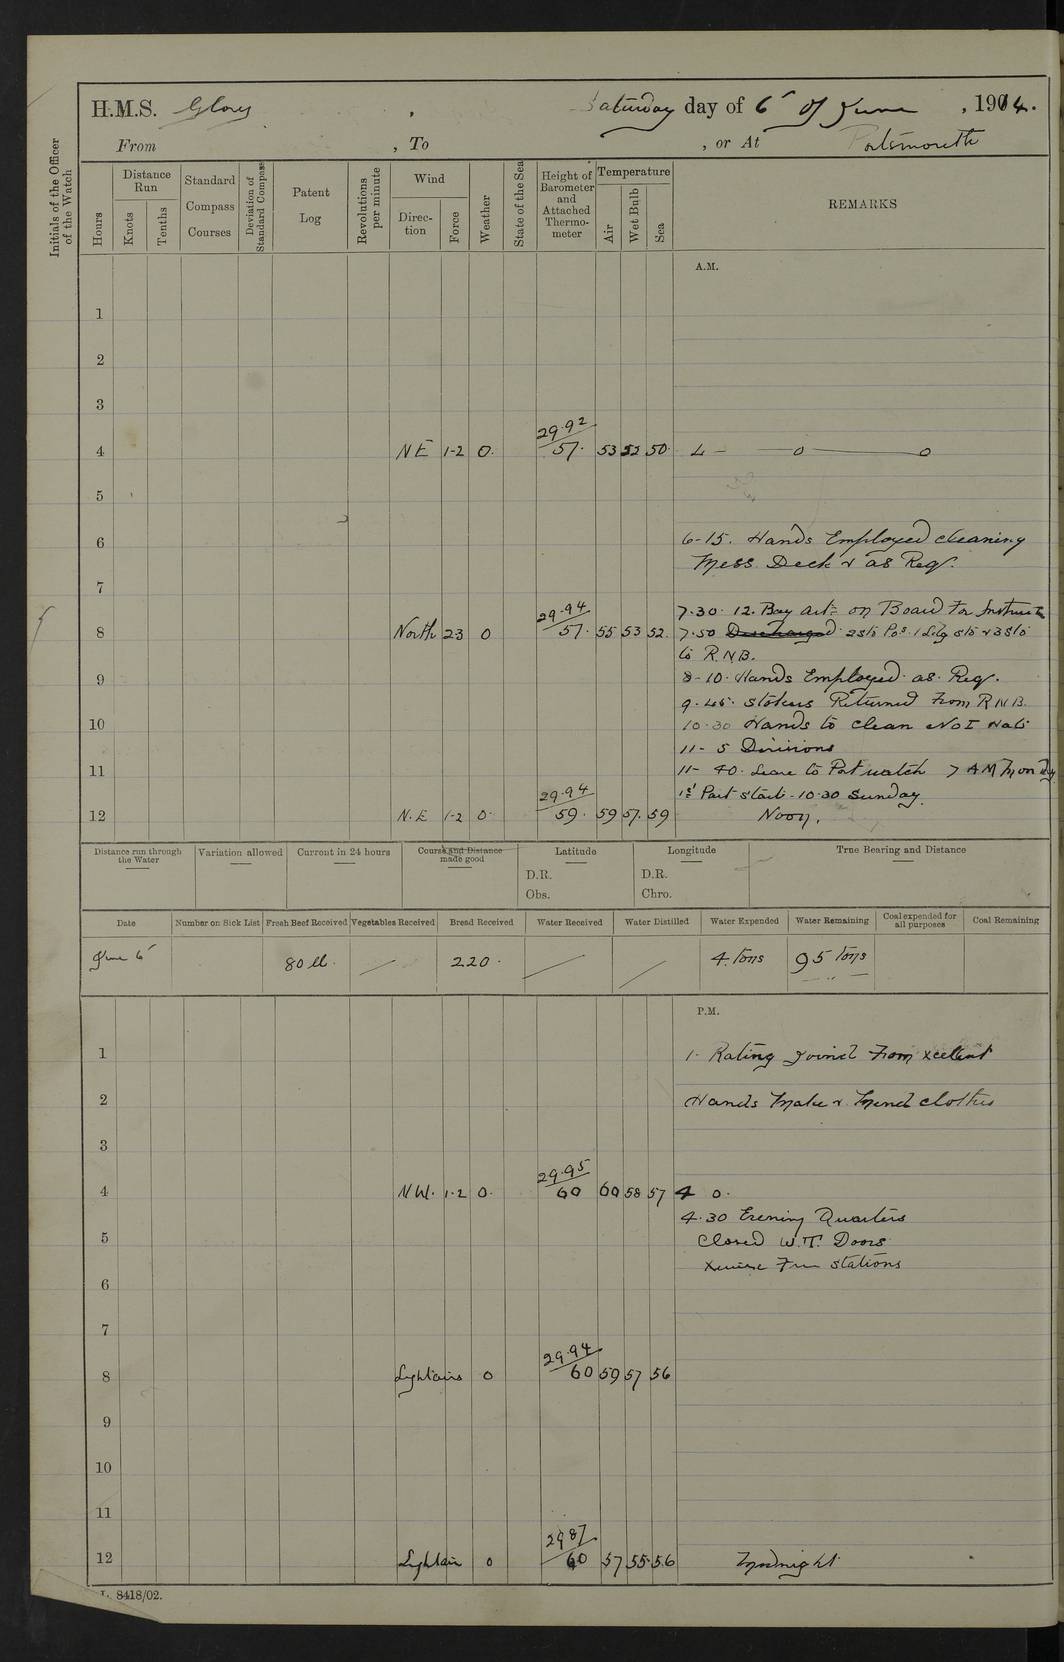 H.M.S. Glory, Saturday day of 6th of June, 1914.
From , To , or At Portsmouth
Initials of the Officer of the Watch
Hours
Distance Run
Knots
Tenths
Standard Compass Courses
Deviation of Standard Compass
Patent Log
Revolutions per minute
Wind
Direction
Force
Weather
State of the Sea
Height of Barometer and Attached Thermometer
Temperature
Air
Wet Bulb
Sea
REMARKS
A.M.
1
2
3
4 NE 1-2 0. 29.92 57. 53 52 50. 4 — 0 — 0
5
6 6-15. Hands Employed cleaning
Mess Deck & as Req.
7
7.30. 12. Boy art= on Board for Instruct
8 North 23 0 29.94 57. 55 53 52. 7.50 Discharged 2 sto Pos. 1 Ldg sto & 3 sto
to R.N.B.
9 8-10. Hands Employed as Req.
9.45. Stokers Returned From RNB.
10 10.30 Hands to clean No I
11-5 Divisions
11 11-40. Leave to Port watch 7 AM Monday
1st Part starb. 10.30 Sunday.
12 N.E 1-2 0. 29.94 59. 59 57. 59 Noon.
Distance run through the Water
Variation allowed
Current in 24 hours
Course and Distance made good
Latitude
D.R.
Obs.
Longitude
D.R.
Chro.
True Bearing and Distance
Date Number on Sick List Fresh Beef Received Vegetables Received Bread Received Water Received Water Distilled Water Expended Water Remaining Coal expended for all purposes Coal Remaining
June 6th 80 lb. 220. 4. Tons 95 Tons
P.M.
1 1. Rating Joined From Xcellent
2 Hands Make & Mend clothes
3
4 NW. 1.2 0. 29.95 60 60 58 57 4 0.
4.30 Evening Quarters
5 Closed W.T. Doors
stations
6
7
8 Lightairs 0 29.94 60 59 57 56
9
10
11
12 Lightair 0 29 87 60 57 55 56 Midnight
8418/02.